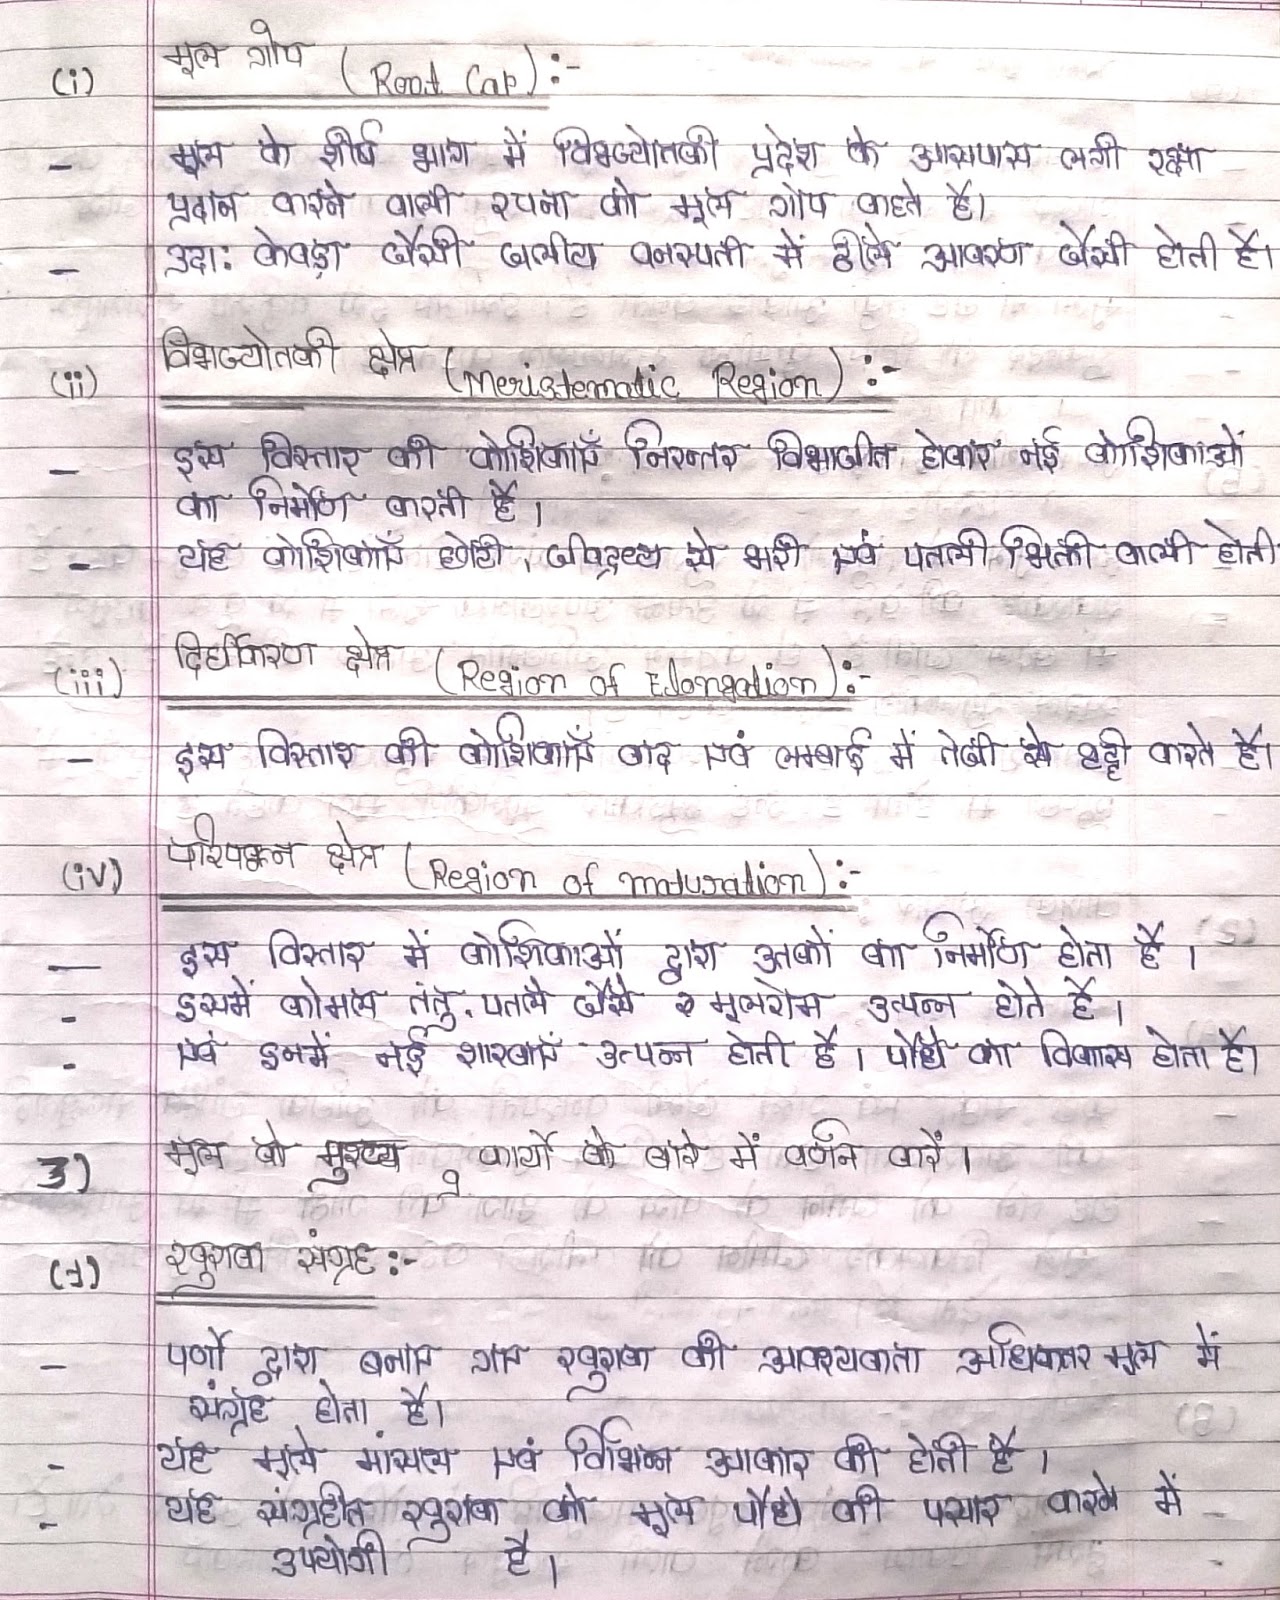 (i) मूल गोप (Root Cap):-
- मूल के शीर्ष भाग में विभज्योतकी प्रदेश के आसपास लगी रक्षा
प्रदान करने वाली रचना को मूल गोप कहते है।
- उदा: केवड़ा जैसी जलीय वनस्पती में ढीले आवरण जैसी होती है।
(ii) विभज्योतकी क्षेत्र (Meristematic Region):-
- इस विस्तार की कोशिकाएँ निरन्तर विभाजीत होकर नई कोशिकाओं
का निर्माण करती है।
- यह कोशिकाएँ छोटी, जीवद्रव्य से भरी एवं पतली भित्ती वाली होती
(iii) दिर्घीकरण क्षेत्र (Region of Elongation):-
- इस विस्तार की कोशिकाएँ कद एवं लम्बाई में तेजी से वृद्दी करते है।
(iv) परिपक्वन क्षेत्र (Region of maturation):-
- इस विस्तार में कोशिकाओं द्वारा उतकों का निर्माण होता है।
- इसमें कोमल तंतु, पतले जैसे मूलरोम उत्पन्न होते है।
- एवं इनमें नई शाखाएँ उत्पन्न होती है। पौधे का विकास होता है।
3) मूल के मुख्य कार्यो के बारे में वर्णन करें।
(1) खुराक संग्रह:-
- पर्णो द्वारा बनाए गए खुराक की आवश्यकता अधिकतर मूल में
संग्रह होता है।
- यह मूले मांसल एवं विभिन्न आकार की होती है।
- यह संग्रहीत खुराक को मूल पौधे की पसार करने में
उपयोगी है।